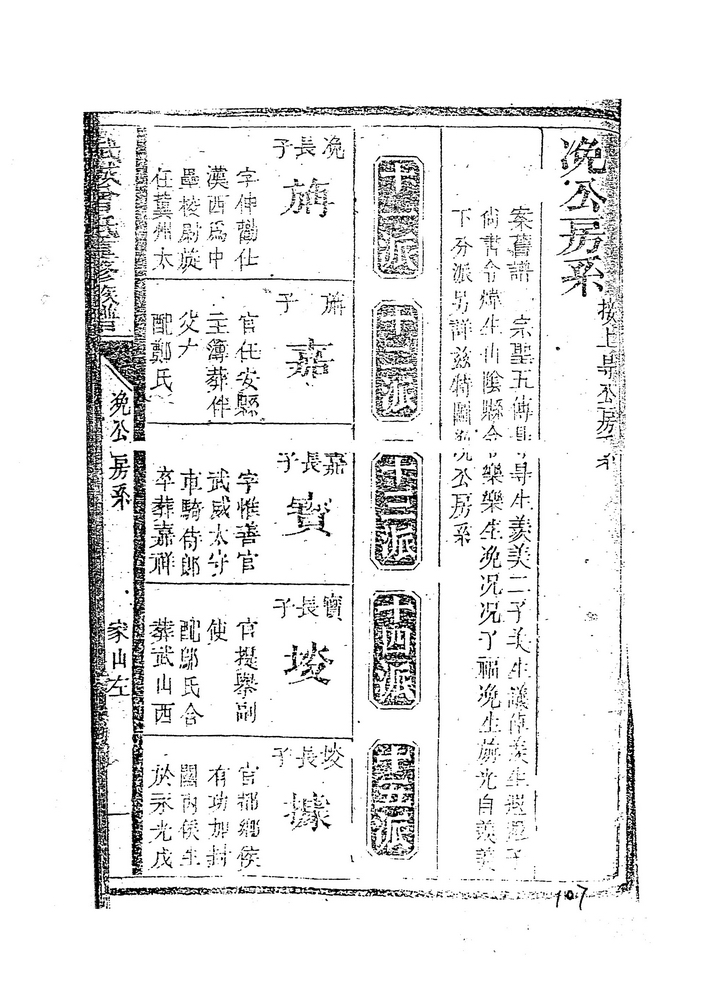 浼公房系
接上尋公房系
案舊譜 宗聖五傳尋尋生羨美二子美生議偉羨生遐 子
尚書令煒生山陰縣令 樂樂生浼况况子福浼生旃光自羨美
下分派另詳茲特圖浼公房系
十一派
十二派
十三派
十四派
十五派
浼長子
旃
字伸勸仕
漢西為中
壘校尉旋
任冀州太
旃子
嘉
官任安縣
主簿葬伴
父
配鄭氏
嘉長子
寶
字惟善官
武威太守
車騎侍郎
卒葬嘉祥
寶長子
埈
官提舉副
使
配鄔氏合
葬武山西
埈長子
據
官都鄉侯
有功加封
關內侯生
於永光戊
武城曾氏重修族譜
浼公房系
家山左
一
107